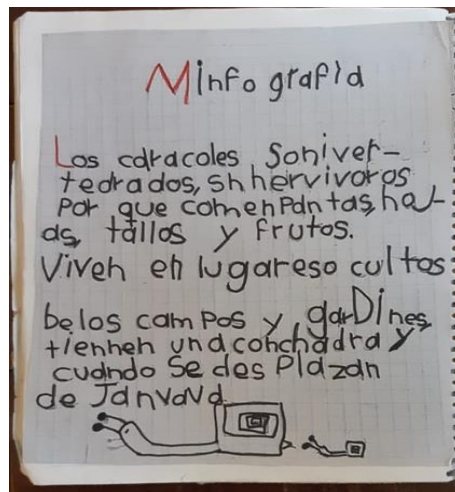 Minfo grafia
Los caracoles Soniver-
tedrados, sh hervivoros
Por que comen pantas, hoJ-
as, tallos y frutos.
Viven en lugareso cultos
belos campos y garDines,
tiennen una conchadra y
cuando Se des Plazan
de Janvava